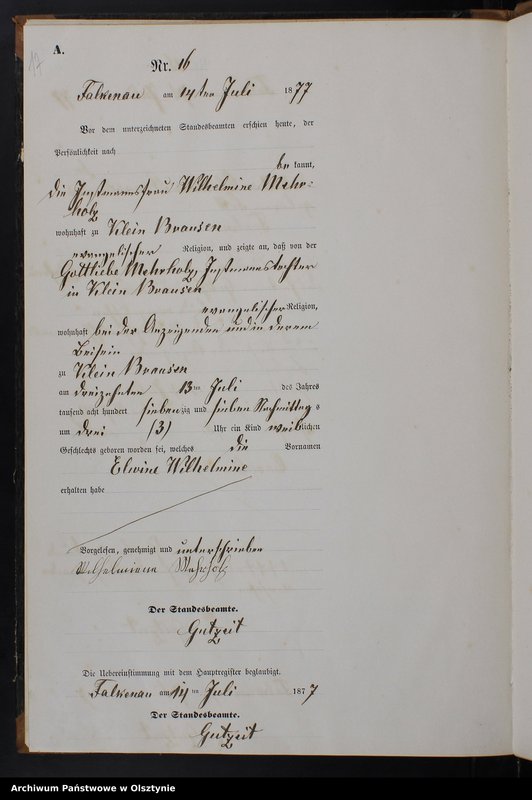 A.
17
Nr. 16
Falkenau am 14ten Juli 1877
Vor dem unterzeichneten Standesbeamten erschien heute, der
Persönlichkeit nach
be kannt,
die Instmannsfrau Wilhelmine Mehr-
holz
wohnhaft zu Klein Brausen
evangelischer Religion, und zeigte an, daß von der
Gottliebe Mehrholz, Instmannstochter
in Klein Brausen
evangelischer Religion,
wohnhaft bei der Anzeigenden und in derem
Beisein
zu Klein Brausen
am dreizehnten 13ten Juli des Jahres
tausend acht hundert siebenzig und sieben Nachmittags
um drei (3) Uhr ein Kind weiblichen
Geschlechts geboren worden sei, welches die Vornamen
Elwine Wilhelmine
erhalten habe
Vorgelesen, genehmigt und unterschrieben
Wilhelmiene Mehrholz
Der Standesbeamte.
Gutzeit
Die Uebereinstimmung mit dem Hauptregister beglaubigt.
Falkenau am 14ten Juli 1877
Der Standesbeamte.
Gutzeit
Archiwum Państwowe w Olsztynie